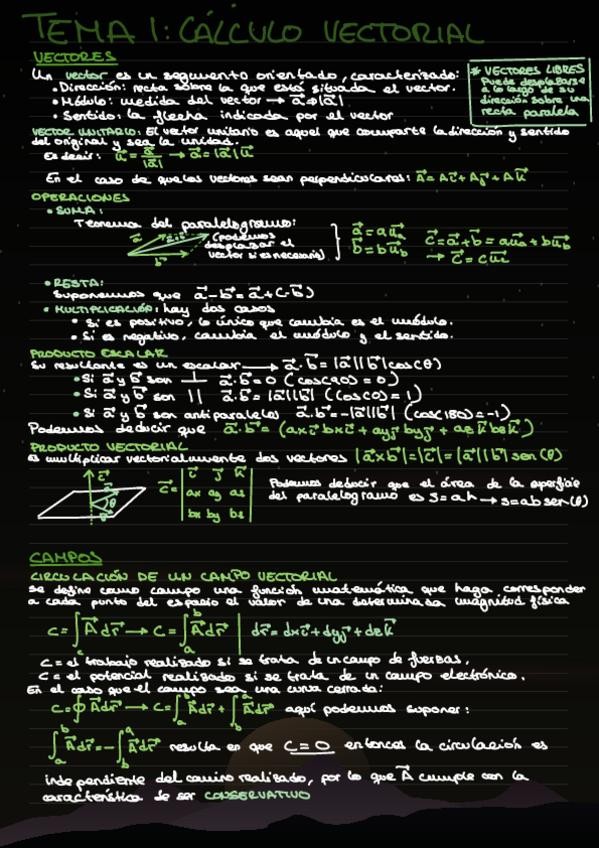 TEMA 1: CÁLCULO VECTORIAL
VECTORES
Un vector es un segmento orientado, caracterizado:
• Dirección: recta sobre la que está situada el vector.
• Módulo: medida del vector → a⃗ ⇒ |a⃗|
• Sentido: la flecha indicada por el vector
* VECTORES LIBRES
Puede desplazarse
a lo largo de su
dirección sobre una
recta paralela
VECTOR UNITARIO: El vector unitario es aquel que comparte la dirección y sentido
del original y sea la unidad.
Es decir: u⃗ = a⃗/|a⃗| → a⃗ = |a⃗| u⃗
En el caso de que los vectores sean perpendiculares: A⃗ = Ai⃗ + Aj⃗ + Ak⃗
OPERACIONES
• SUMA:
Teorema del paralelogramo:
(podemos
desplazar el
vector si es necesario)
a⃗ = a u⃗a
b⃗ = b u⃗b
c⃗ = a⃗ + b⃗ = a u⃗a + b u⃗b
→ c⃗ = c u⃗c
• RESTA:
Suponemos que a⃗ - b⃗ = a⃗ + (-b⃗)
• MULTIPLICACIÓN: hay dos casos
• Si es positivo, lo único que cambia es el módulo.
• Si es negativo, cambia el módulo y el sentido.
PRODUCTO ESCALAR
Su resultante es un escalar → a⃗ · b⃗ = |a⃗||b⃗| cos(θ)
• Si a⃗ y b⃗ son ⊥ a⃗ · b⃗ = 0 (cos(90) = 0)
• Si a⃗ y b⃗ son || a⃗ · b⃗ = |a⃗||b⃗| (cos(0) = 1)
• Si a⃗ y b⃗ son antiparalelos a⃗ · b⃗ = -|a⃗||b⃗| (cos(180) = -1)
Podemos deducir que a⃗ · b⃗ = (ax i⃗ bx i⃗ + ay j⃗ by j⃗ + az k⃗ bz k⃗)
PRODUCTO VECTORIAL
es multiplicar vectorialmente dos vectores |a⃗ x b⃗| = |c⃗| = |a⃗||b⃗| sen(θ)
c⃗ = | i⃗ j⃗ k⃗ |
ax ay az
bx by bz
Podemos deducir que el área de la superficie
del paralelogramo es S = a h → S = a b sen(θ)
CAMPOS
CIRCULACIÓN DE UN CAMPO VECTORIAL
Se define como campo una función matemática que haga corresponder
a cada punto del espacio el valor de una determinada magnitud física
C = ∫c A⃗ dr⃗ → C = ∫a^b A⃗ dr⃗ | dr⃗ = dx i⃗ + dy j⃗ + dz k⃗
C = el trabajo realizado si se trata de un campo de fuerzas.
C = el potencial realizado si se trata de un campo electrónico.
En el caso que el campo sea una curva cerrada:
C = ∮ A⃗ dr⃗ → C = ∫a^b A⃗ dr⃗ + ∫b^a A⃗ dr⃗ aquí podemos suponer:
∫a^b A⃗ dr⃗ = - ∫b^a A⃗ dr⃗ resulta en que C = 0 entonces la circulación es
independiente del camino realizado, por lo que A⃗ cumple con la
característica de ser CONSERVATIVO